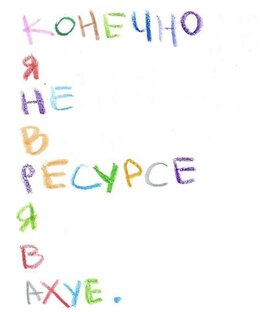 КОНЕЧНО
Я
НЕ
В
РЕСУРСЕ
Я
В
АХУЕ.